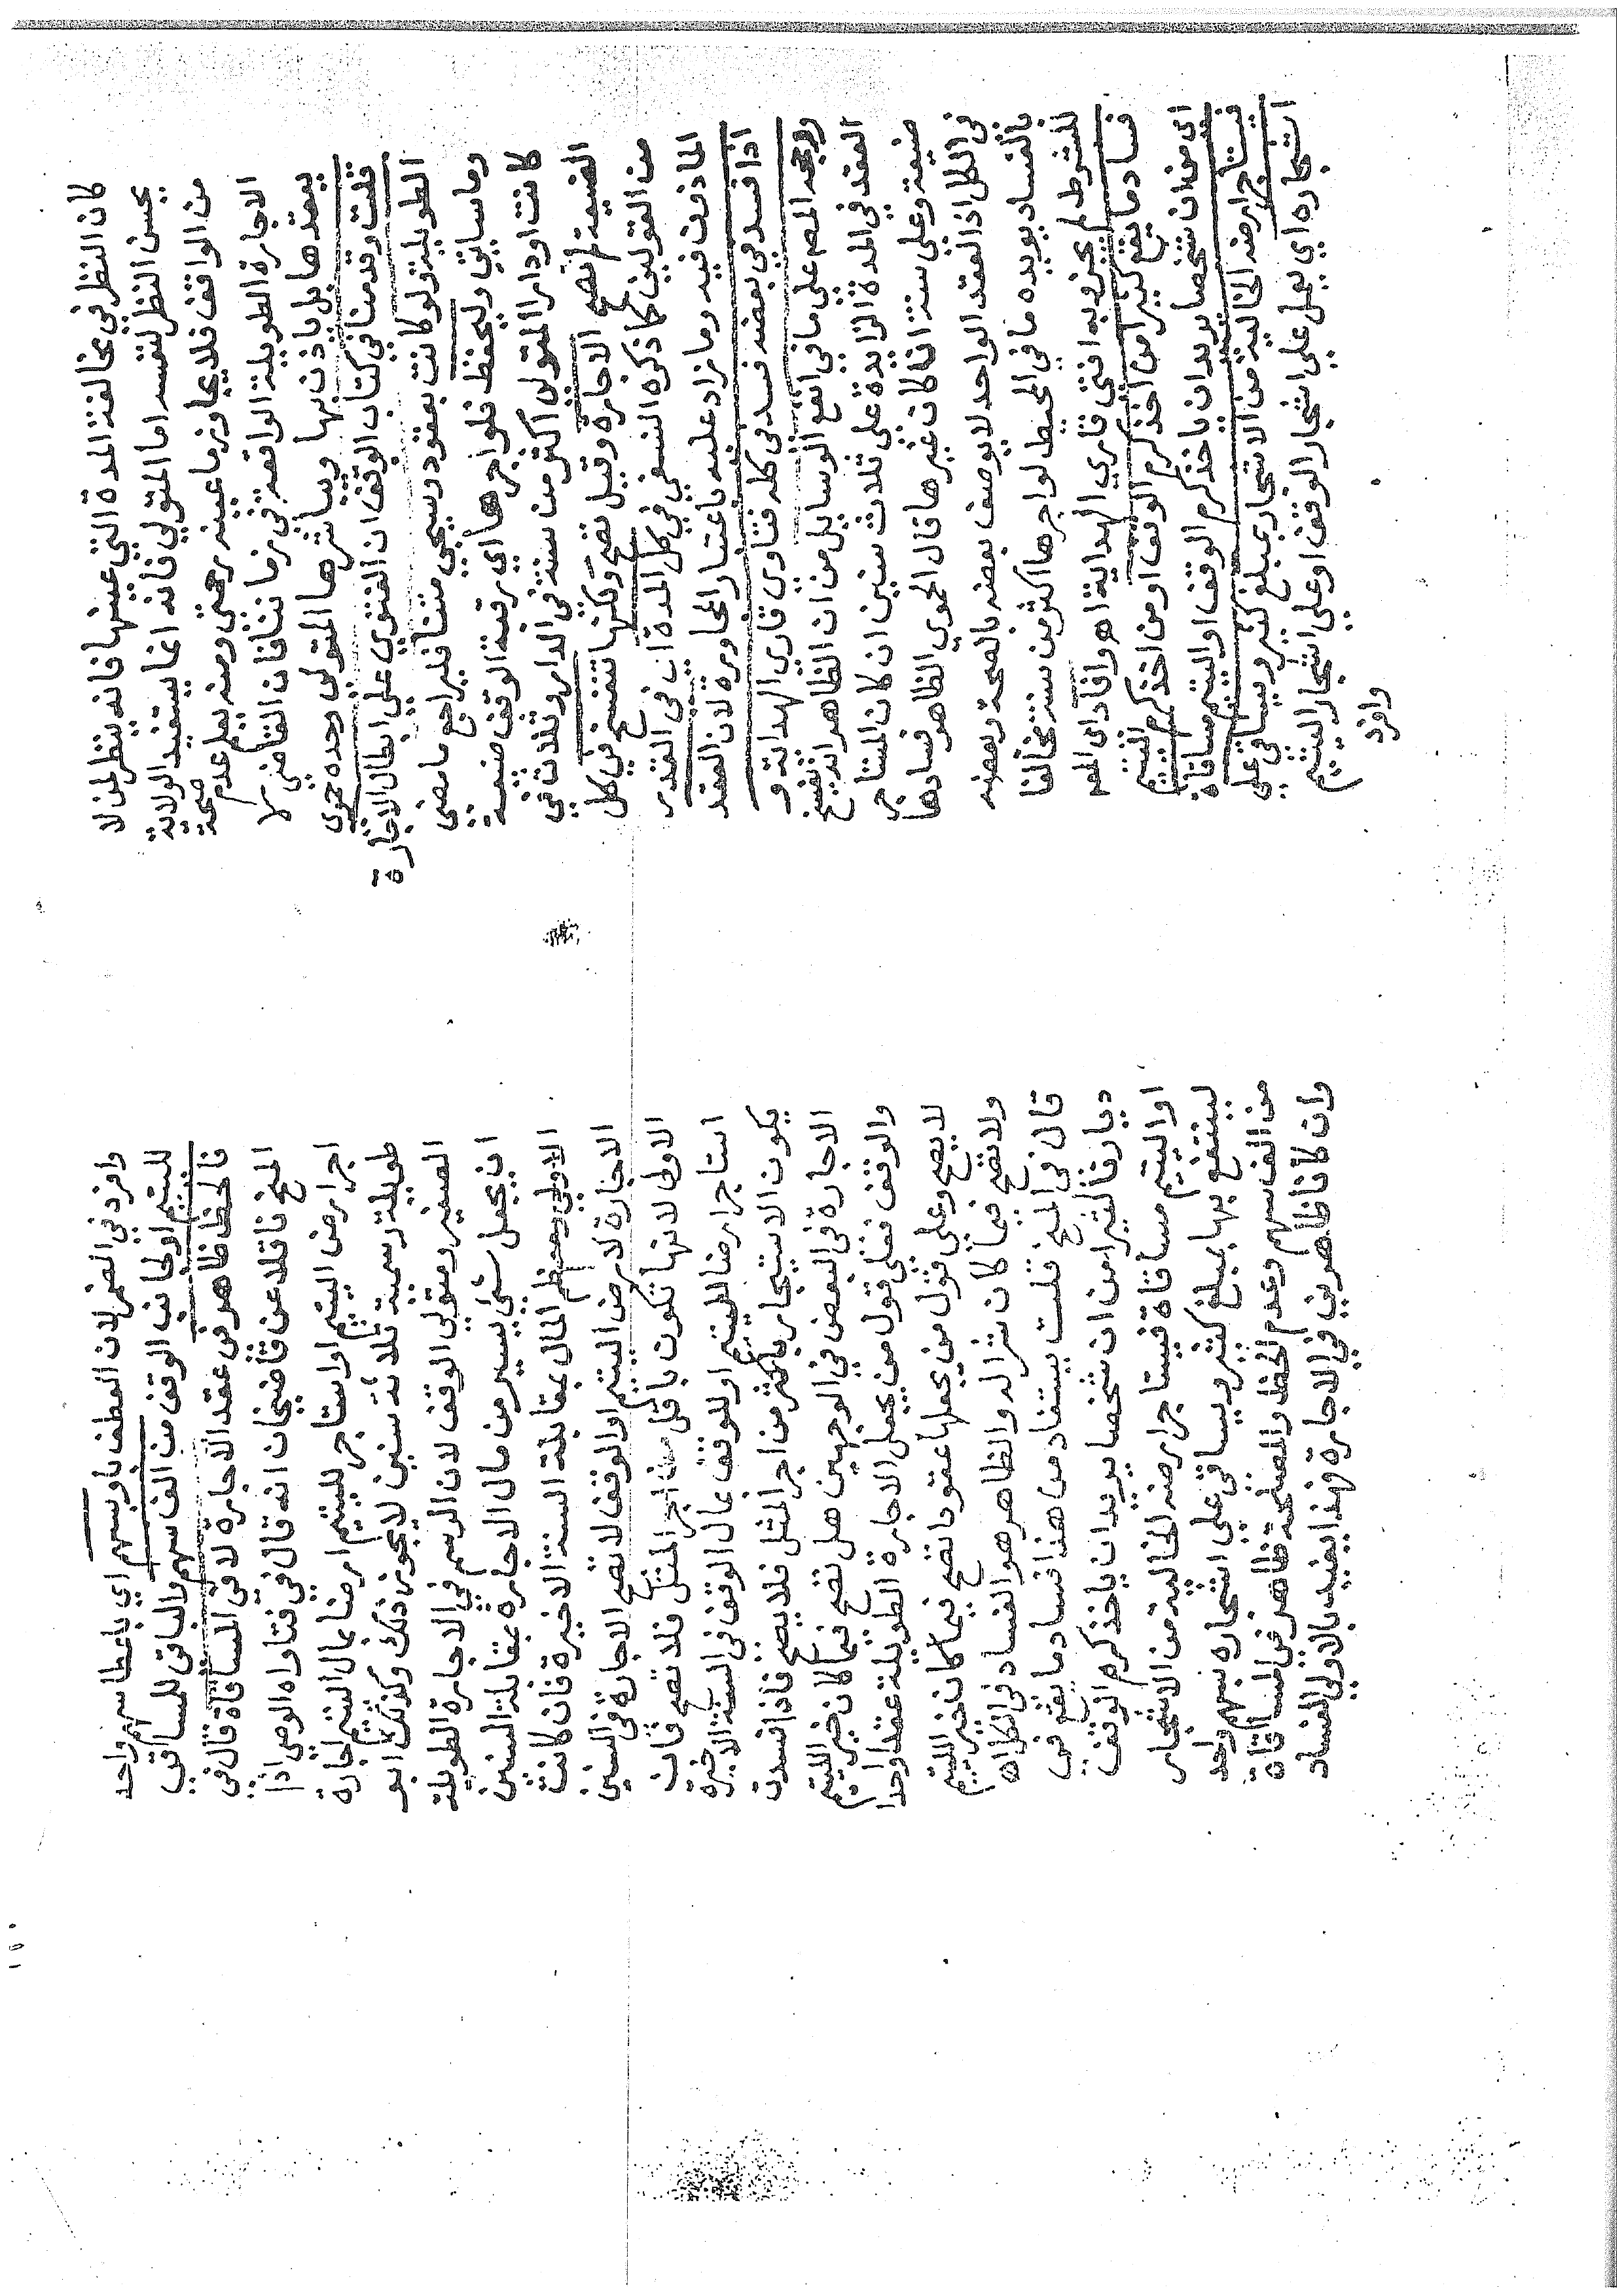 كان النظر في مخالفة المدة التي عينها فانه ينظر لمن لا
يحسن النظر لنفسه اما المتولي فانه انما يستفيد الولاية
من الواقف فلا يجاوز ما عينه رحمتي ومنه يعلم عدم صحة
الاجارة الطويلة الواقعة في زماننا فان القاضي لا
يعقدها بل ياذن بها ويباشرها المتولي وحده حموي
قلت وقدمنا في كتاب الوقف ان الفتوي علي ابطال الاجارة
الطويلة ولو كانت بعقود وسيجي متنا فليراجع ما مضي
وما سياتي وليحفظ فلو اجرها اي رقبة الوقف ضيعة
كانت او دارا المتولي اكثر من سنة في الدار وثلاث في
الضيعة لم تصح الاجارة وقيل تصح ولكنها تنفسخ في كل
من القولين كما ذكره النسفي في كل المدة اي في القدر
الماذون فيه وما زاد عليه باعتبار المجاورة لان العقد
اذا فسد في بعضه فسد في كله فتاوي قاري الهداية و
رجحه المصر علي ما في انفع الوسايل من ان الظاهر انه يفسخ
العقد في المدة الزايدة علي ثلاث سنين ان كان المستاجر
ضيعة وعلي سنة ان كان غيرها قال الحموي الظاهر فسادها
في الكل اذ العقد الواحد لا يوصف بعضه بالصحة وبعضه
بالفساد يويده ما في المحيط لو اجرها اكثر من سنة مخالفا
للشرط لم يجز وبه افتي قاري الهداية اهـ وافاد اي المصر
فساد ما يقع كثيرا من اخذ كرم الوقف او من اخذ كرم اليتيم
اي من ان شخصا يريد ان ياخذ كرم الوقف او اليتيم مساقاة
فيستاجر ارضه الخالية من الاشجار بمبلغ كثير ويساقي علي
اشجاره اي يعمل علي اشجار الوقف او علي اشجار اليتيم
وافرد
وافرد في الضمر لان العطف باو بسهم اي باعطا سهم واحد
لليتيم او لجانب الوقف من الف سهم والباقي للمساقي
فالحظ ظاهر في عقد الاجارة لا في المساقاة قال في
المنح ناقلا عن قاضيخان انه قال في فتاواه الوصي اذا
اجر ارض اليتيم او استاجر لليتيم ارضا بمال اليتيم اجارة
طويلة رسمية ثلاثة سنين لا يجوز ذلك وكذلك ابو
الصغير ومتولي الوقف لان الرسم في الاجارة الطويلة
ان يجعل شي يسير من مال الاجارة بمقابلة السنين
الاولي ومعظم المال بمقابلة السنة الاخيرة فان كانت
الاجارة لارض اليتيم او الوقف لا تصح الاجارة في السنين
الاولي لانها تكون باقل من اجر المثل فلا تصح فان
استاجر ارضا لليتيم او للوقف بمال الوقف في السنة الاخيرة
يكون الاستيجار باكثر من اجر المثل فلا يصح فاذا فسدت
الاجارة في البعض في الوجهين هل تصح فيما كان خير اليتيم
والوقف فعلي قول من يجعل الاجارة الطويلة عقدا واحدا
لا يصح وعلي قول من يجعلها عقودا تصح فيما كان خير اليتيم
ولا تصح فيما كان شر اله والظاهر هو الفساد في الكل اهـ
قال في المنح قلت يستفاد من هذا فساد ما يقع في
ديارنا كثيرا من ان شخصا يريد ان ياخذ كرم الوقف
او اليتيم مساقاة فيستاجر ارضه الخالية من الاشجار
لينتفع بها بمبلغ كثير ويساقي علي اشجاره بسهم واحد
من الف سهم وعدم الحظ والمصلحة ظاهر في المساقاة
وان كانا ظاهرين في الاجارة فهذا يفيد بالاولي الفساد